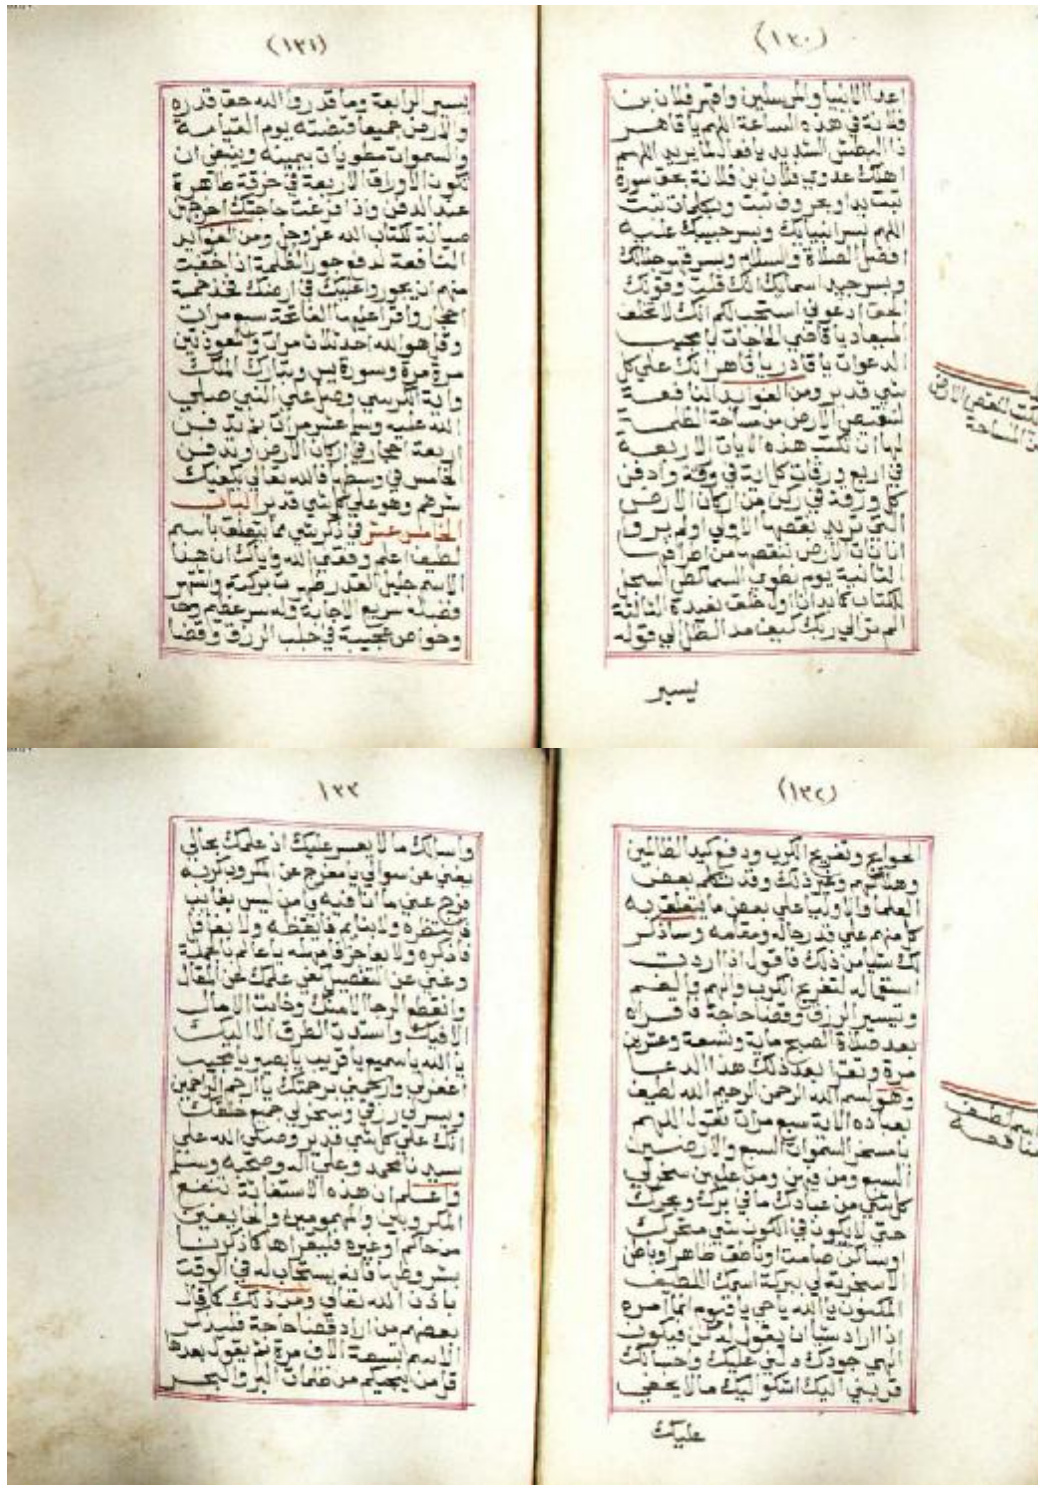 (١٣٠)
اعدا الانبيا والمرسلين واقهر فلان بن
فلانة في هذه الساعة اللهم يا قاهر
ذا البطش الشديد يا فعال لما يريد اللهم
اهلك عدوي فلان بن فلانة بحق سورة
تبت يدا وبحروف تبت وبكلمات تبت
اللهم بسر انبيايك وبسر حبيبك عليه
افضل الصلاة والسلام وبسر قهر جلالك
وبسر جميع اسمايك انك قلت وقولك
الحق ادعوني استجب لكم انك لا تخلف
الميعاد يا قاضي الحاجات يا مجيب
الدعوات يا قادر يا قاهر انك علي كل
شي قدير ومن الفوايد النافعة
لنقص الارض من مساحة الظلمة
لها ان تكتب هذه الايات الاربعة
في اربع ورقات كل اية في ورقة وادفن
كل ورقة في ركن من اركان الارض
التي تريد نقصها الاولي اولم يروا
انا نات الارض ننقصها من اطرافها
الثانية يوم نطوي السما كطي السجل
للكتاب كما بدانا اول خلق نعيده الثالثة
الم تر الي ربك كيف مد الظل الي قوله
يسير
نقص الارض
المساحة
(١٣١)
يسير الرابعة وما قدروا الله حق قدره
والارض جميعا قبضته يوم القيامة
والسموات مطويات بيمينه وينبغي ان
تكون الاوراق الاربعة في خرقة طاهرة
عند الدفن واذا فرغت حاجتك اخرجهن
صيانة لكتاب الله عز وجل ومن الفوايد
النافعة لدفع جور الظلمة اذا خفت
منهم ان يجوروا عليك في ارضك فخذ خمسة
احجار واقرا عليها الفاتحة سبع مرات
وقل هو الله احد ثلاث مرات والمعوذتين
مرة مرة وسورة يس وتبارك الملك
واية الكرسي وصل علي النبي صلي
الله عليه وسلم عشر مرات ثم تدفن
اربعة احجار في اركان الارض وتدفن
الخامس في وسطها فالله تعالي يكفيك
شرهم وهو علي كل شي قدير الباب
الخامس عشر في ذكر شي مما يتعلق باسم
لطيف اعلم وفقني الله واياك ان هذا
الاسم جليل القدر ظهرت بركته واشتهر
فضله سريع الاجابة وله سر عظيم
وخواص عجيبة في جلب الرزق وقضا
(١٣٢)
الحوايج وتفريج الكرب ودفع كيد الظالمين
وهلاكهم وغير ذلك وقد تكلم بعض
العلما والاوليا علي بعض ما يتعلق به
كل منهم علي قدر حاله ومقامه وساذكر
لك شيا من ذلك فاقول اذا اردت
استعماله لتفريج الكرب والهم والغم
وتيسير الرزق وقضا حاجة فاقراه
بعد صلاة الصبح ماية وتسعة وعشرين
مرة وتقرا بعد ذلك هذا الدعا
وهو بسم الله الرحمن الرحيم الله لطيف
بعباده الاية سبع مرات تقول اللهم
يا مسخر السموات السبع والارضين
السبع ومن فيهن ومن عليهن سخر لي
كل شي من عبادك مما في برك وبحرك
حتي لا يكون في الكون شي متحرك
او ساكن صامت او ناطق ظاهر وباطن
الا سخرته لي ببركة اسمك اللطيف
المكنون يا الله يا حي يا قيوم انما امره
اذا اراد شيا ان يقول له كن فيكون
الهي جودك دلني عليك واحسانك
قربني اليك اشكو اليك ما لا يخفي
عليك
اسم لطيف
منافعه
١٣٣
واسالك ما لا يعسر عليك اذ علمك بحالي
يغني عن سوالي يا مفرج عن المكروب كربه
فرج عني ما انا فيه يا من ليس بغايب
فانتظره ولا بنايم فايقظه ولا بغافل
فاذكره ولا بعاجز فامهله يا عالم بالجملة
وغني عن التفصيل غني علمك عن المقال
وانقطع الرجا الا منك وخابت الامال
الا فيك وانسدت الطرق الا اليك
يا الله يا سميع يا قريب يا بصير يا مجيب
اغفر لي وارحمني برحمتك يا ارحم الراحمين
ويسر لي رزقي وسخر لي جميع خلقك
انك علي كل شي قدير وصلي الله علي
سيدنا محمد وعلي اله وصحبه وسلم
واعلم ان هذه الاستغاثة تنفع
المكروبين والمهمومين والخايفين
من حاكم او غيره فليقراها كما ذكرنا
بشروطها فانه يستجاب له في الوقت
باذن الله تعالي ومن ذلك كما قال
بعضهم من اراد قضا حاجة فليذكر
الاسم تسعة الاف مرة ثم يقول بعدها
قل من ينجيكم من ظلمات البر والبحر